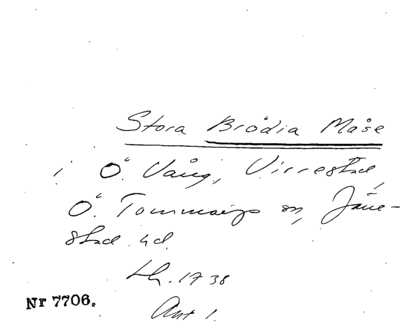 Stora Brödia Måse
i Ö. Vång, Virrestad,
Ö. Tommarps sn, Järre-
stad hd.
Lh. 1738
Ant 1.
Nr 7706.